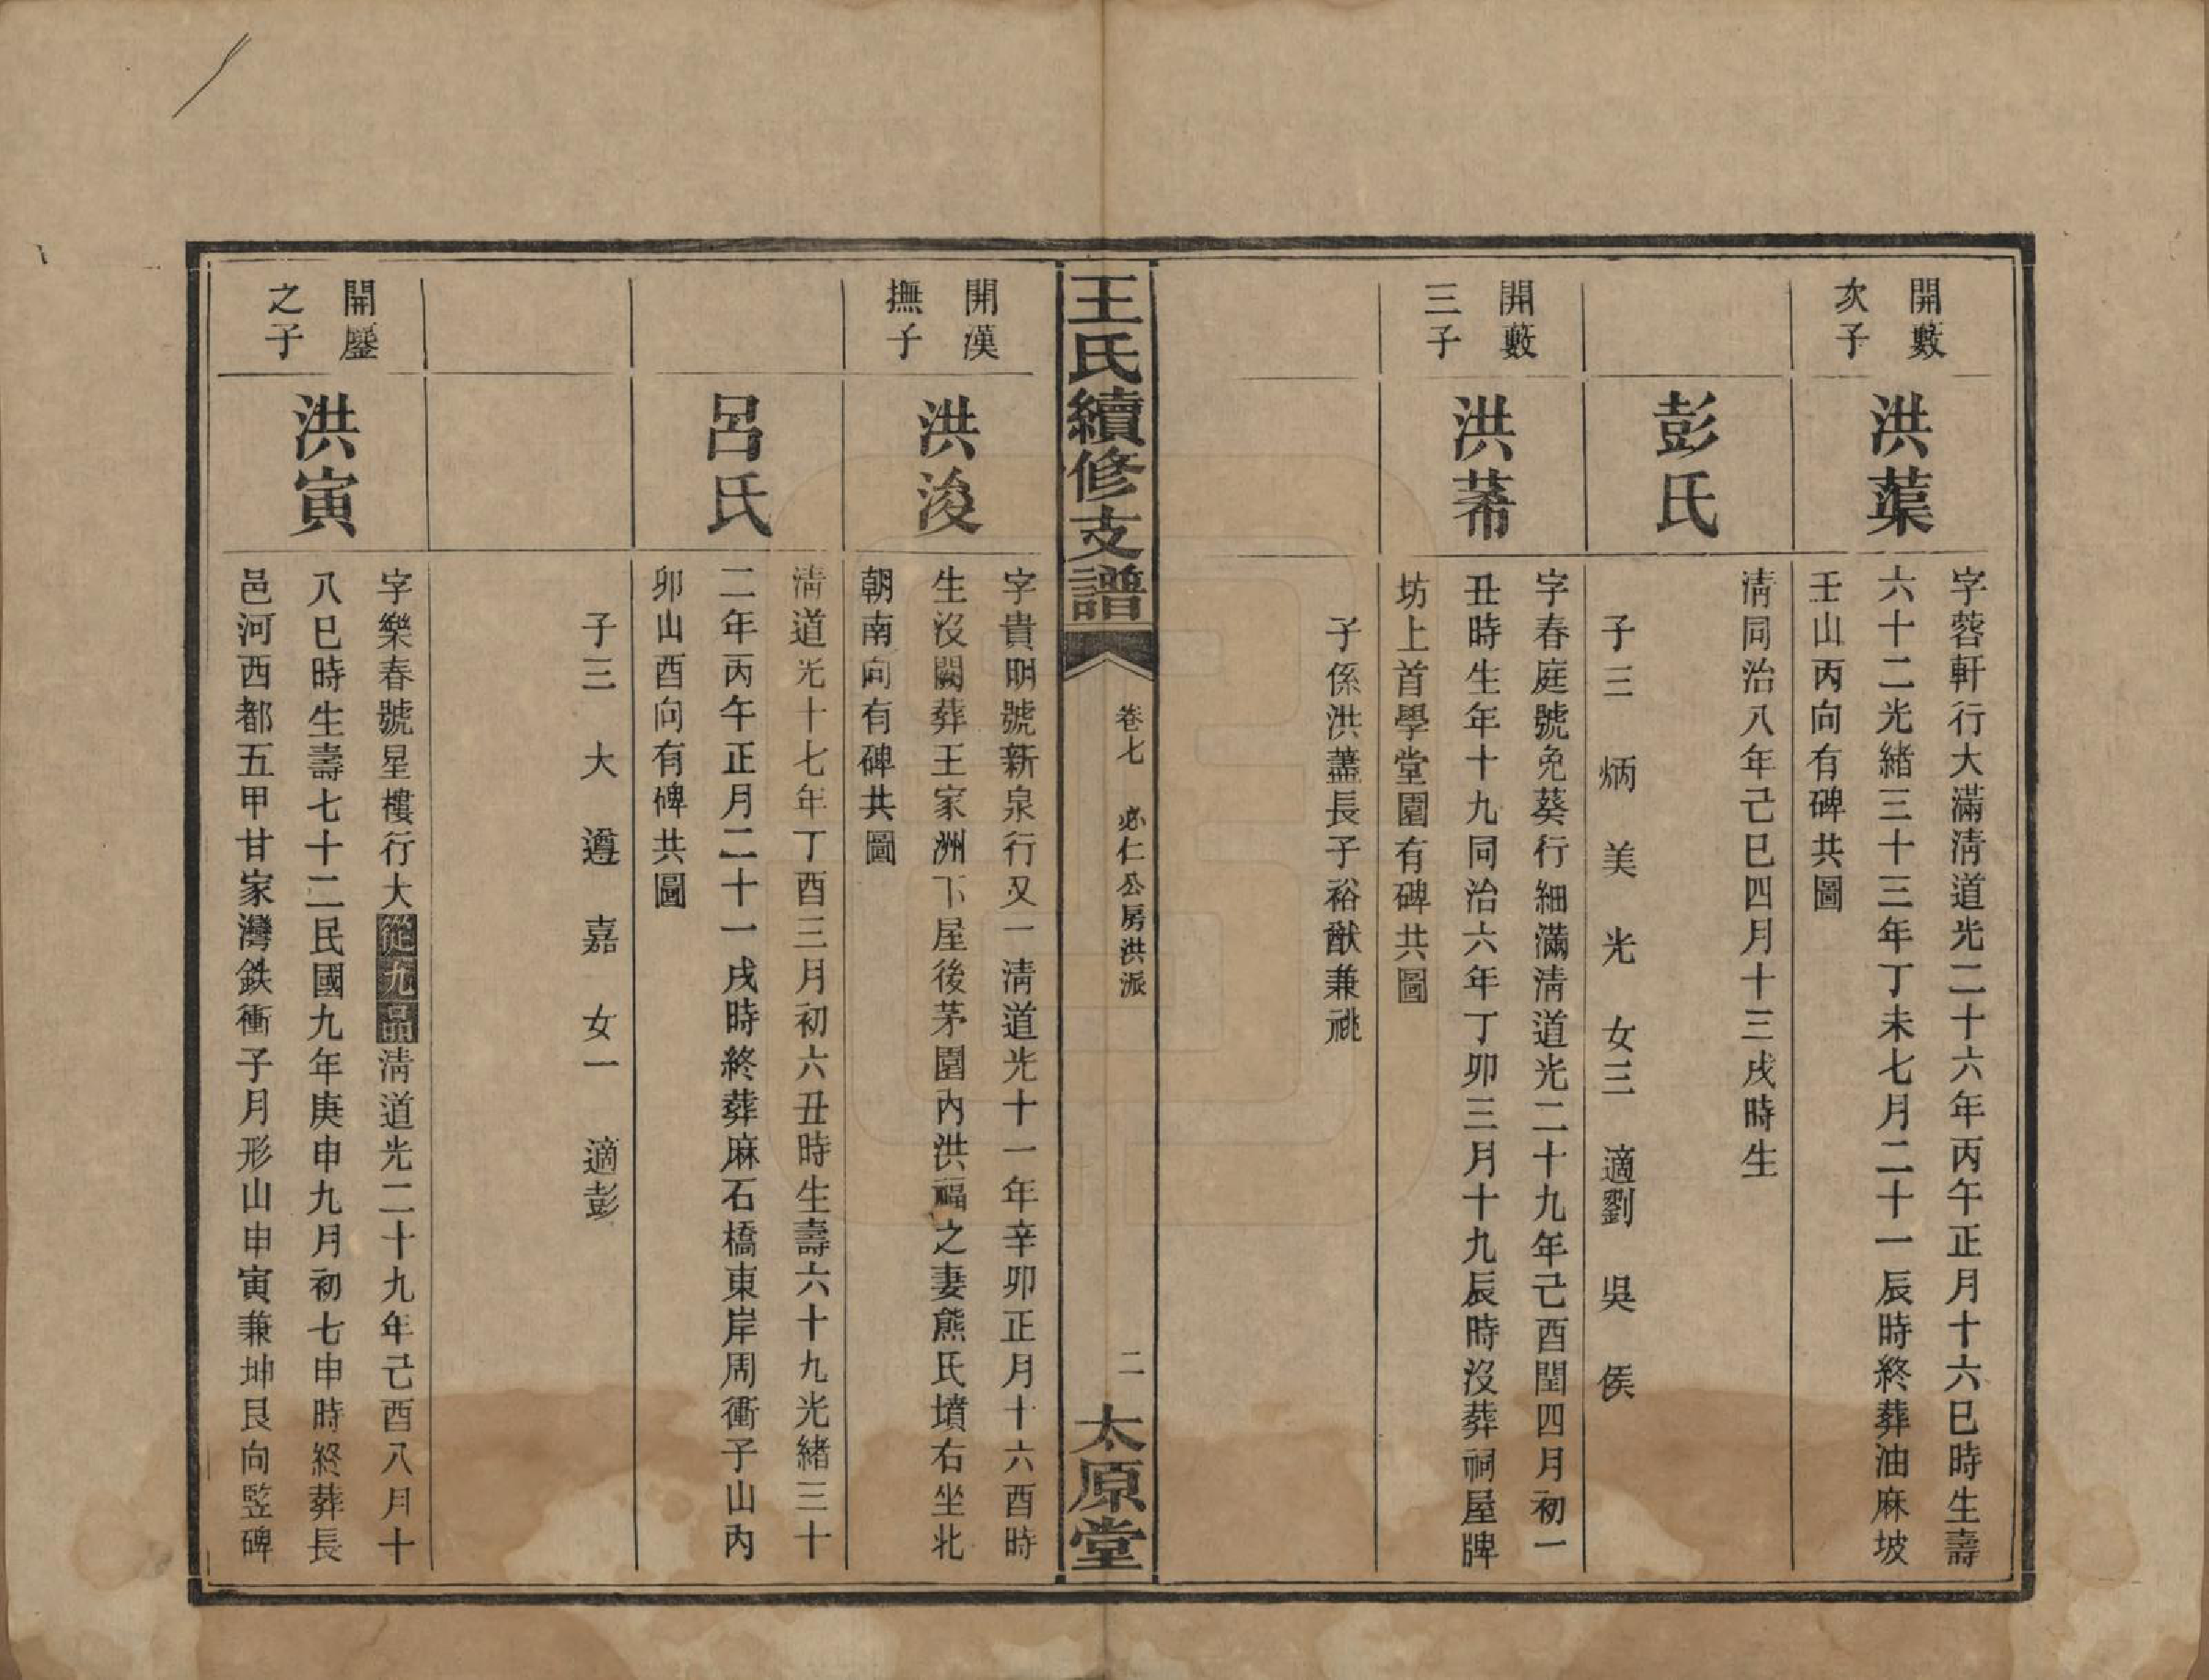 開藪
次子
洪蕖
字蓉軒行大滿淸道光二十六年丙午正月十六巳時生壽
六十二光緒三十三年丁未七月二十一辰時終葬油麻坡
壬山丙向有碑共圖
彭氏
淸同治八年己巳四月十三戌時生
子三　炳　美　光　女三　適劉　吳　侯
開藪
三子
洪芾
字春庭號免葵行細滿淸道光二十九年己酉閏四月初一
丑時生年十九同治六年丁卯三月十九辰時沒葬祠屋牌
坊上首學堂園有碑共圖
子係洪藎長子裕猷兼祧
王氏續修支譜
卷七　必仁公房洪派
二
太原堂
開漢
撫子
洪浚
字貴明號新泉行又一淸道光十一年辛卯正月十六酉時
生沒闕葬王家洲下屋後茅園內洪福之妻熊氏墳右坐北
朝南向有碑共圖
呂氏
淸道光十七年丁酉三月初六丑時生壽六十九光緒三十
二年丙午正月二十一戌時終葬麻石橋東岸周衝子山內
卯山酉向有碑共圖
子三　大　遵　嘉　女一　適彭
開鏖
之子
洪寅
字樂春號星樓行大從九品淸道光二十九年己酉八月十
八巳時生壽七十二民國九年庚申九月初七申時終葬長
邑河西都五甲甘家灣鉄衝子月形山申寅兼坤艮向監碑